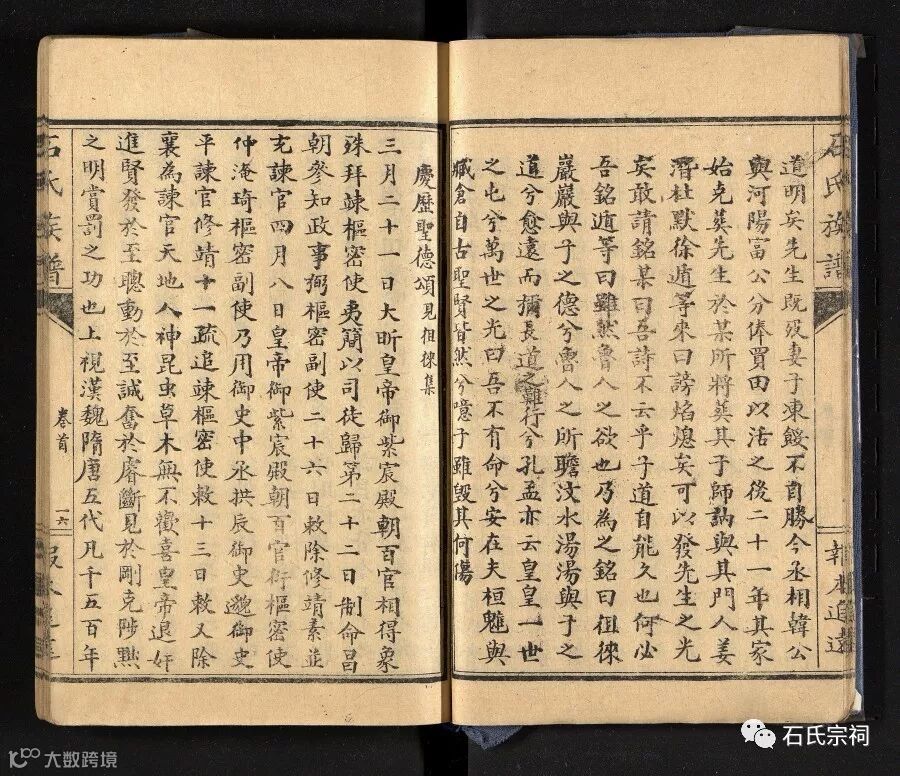 石氏族譜
報本追遠
道明矣先生既没妻子凍餒不自勝今丞相韓公
與河陽富公分俸買田以活之後二十一年其家
始克葬先生於某所將葬其子師訥與其門人姜
潛杜默徐遁等來曰謗焰熄矣可以發先生之光
矣敢請銘某曰吾詩不云乎子道自能久也何必
吾銘遁等曰雖然魯人之欲也乃為之銘曰徂徠
巖巖與子之德兮魯人之所瞻汶水湯湯與子之
道兮愈遠而彌長道之難行兮孔孟亦云皇皇一世
之屯兮萬世之光曰吾不有命兮安在夫桓魋與
臧倉自古聖賢皆然兮噫子雖毀其何傷
慶歷聖德頌見徂徠集
三月二十一日大昕皇帝御紫宸殿朝百官相得象
殊拜竦樞密使夷簡以司徒歸第二十二日制命昌
朝參知政事弼樞密副使二十六日敕除修靖素並
充諫官四月八日皇帝御紫宸殿朝百官衍樞密使
仲淹琦樞密副使乃用御史中丞拱辰御史邈御史
平諫官修靖十一疏追竦樞密使敕十三日敕又除
襄為諫官天地人神昆虫草木無不歡喜皇帝退奸
進賢發於至聰動於至誠奮於睿斷見於剛克陟黜
之明賞罰之功也上視漢魏隋唐五代凡千五百年
石氏族譜
卷首
一六
石氏宗祠
大数跨境